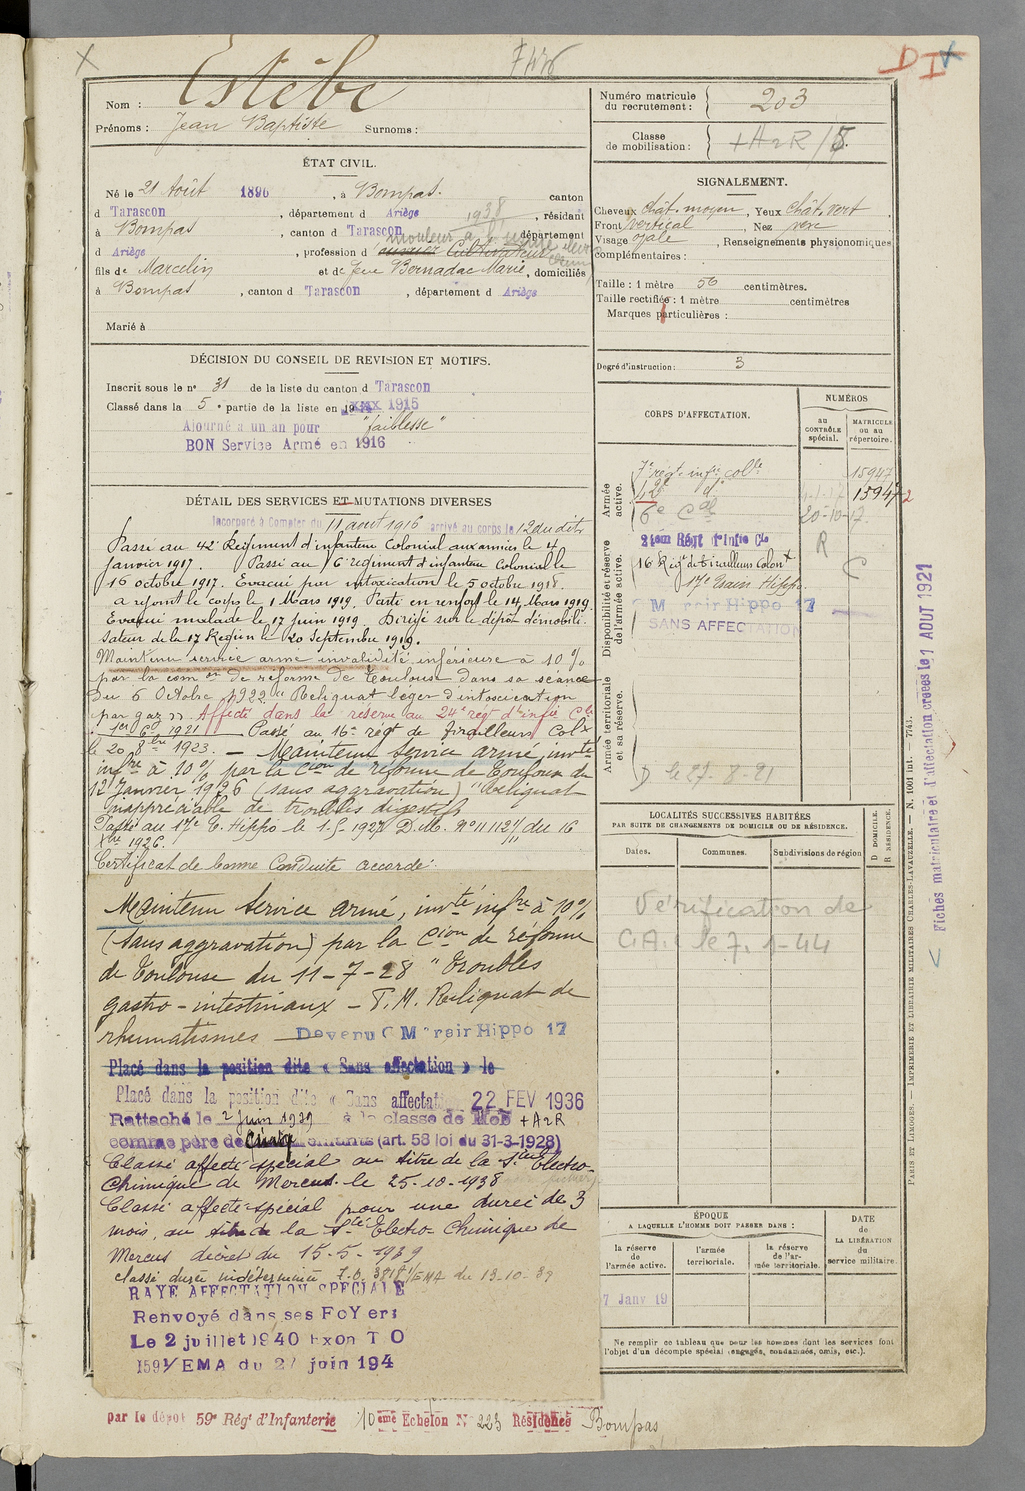 Nom : Estèbe
Prénoms : Jean Baptiste Surnoms :
ÉTAT CIVIL.
Né le 21 Août 1896, à Bompas. canton
d Tarascon, département d Ariège 1938, résidant
à Bompas, canton d Tarascon, département
mouleur à la
d Ariège, profession d ouvrier Cultivateur
fils de Marcelin et de feue Bernadac Marie, domiciliés
à Bompas, canton d Tarascon, département d Ariège
Marié à
DÉCISION DU CONSEIL DE REVISION ET MOTIFS.
Inscrit sous le nº 31 de la liste du canton d Tarascon
Classé dans la 5e partie de la liste en 1915
Ajourné a un an pour "faiblesse"
BON Service Armé en 1916
DÉTAIL DES SERVICES ET MUTATIONS DIVERSES
Incorporé à Compter du 11 août 1916 arrivé au corps le 12 du dit
Passé au 42e Régiment d'infanterie Colonial aux armées le 4
janvier 1917. Passé au 6e régiment d'infanterie Colonial le
16 octobre 1917. Evacué par intoxication le 5 octobre 1918.
a rejoint le corps le 1 Mars 1919. Parti en renfort le 14 Mars 1919.
Evacué malade le 17 juin 1919. Dirigé sur le dépôt démobili-
sateur de la 17 Région le 20 septembre 1919.
Maintenu service armé invalidité inférieure à 10 %
par la comon de réforme de Toulouse dans sa séance
du 6 Octobre 1922 "Reliquat léger d'intoxication
par gaz". Affecté dans la réserve au 24e régt d'infie Cle
1er 6 1921 Passé au 16e régt de tirailleurs Colx
le 20 8bre 1923. — Maintenu service armé, invté
infre à 10 % par la Cion de réforme de Toulouse du
12 Janvier 1926 (sans aggravation) "Reliquat
inappréciable de troubles digestifs
Passé au 17e E. Hippo le 1.1.1927 D.M. Nº 11112 1/11 du 16
Xbre 1926.
Certificat de bonne Conduite accordé.
Maintenu Service armé, invté infre à 10%
(sans aggravation) par la Cion de réforme
de Toulouse du 11-7-28 "Troubles
gastro-intestinaux - P.M. Reliquat de
rhumatismes — Devenu C Mo rair Hippo 17
Placé dans la position dite « Sans affectation » le
Placé dans la position dite « Sans affectati 22 FEV 1936
Rattaché le 2 Juin 1939 à la classe de Mob + A2R
comme père de quatre enfants (art. 58 loi du 31-3-1928)
Classé affecté spécial au titre de la Sté Electro-
Chimique de Mercus. le 25-10-1938
Classé affecté spécial pour une durée de 3
mois, au titre de la Sté Electro Chimique de
Mercus décret du 15-5-1939
classé durée indéterminée I.O. 3818 1/EMA du 13-10-39
RAYE AFFECTATION SPECIALE
Renvoyé dans ses FoYers
Le 2 juillet 1940 Exon T O
1591/EMA du 27 juin 194
par le dépôt 59e Régt d'Infanterie 10eme Echelon Nº 223 Résidence Bompas
Numéro matricule du recrutement : 203
Classe de mobilisation : + A2R / 15.
SIGNALEMENT.
Cheveux chât. moyen, Yeux chât. vert,
Front vertical, Nez
Visage ovale, Renseignements physionomiques
complémentaires :
Taille : 1 mètre 56 centimètres.
Taille rectifiée : 1 mètre centimètres
Marques particulières :
Degré d'instruction : 3
CORPS D'AFFECTATION.
NUMÉROS
au CONTRÔLE spécial.
MATRICULE ou au répertoire.
Armée active.
7e régt infie colle 15947
42e do 15947-2
6e Cal 20-10-17
Disponibilité et réserve de l'armée active.
24ème Régt d'Infie Cle R
16 Régt de tirailleurs Colonx C
17e Train Hippo.
M rair Hippo 17
SANS AFFECTATION
Armée territoriale et sa réserve.
D le 27-8-21
LOCALITÉS SUCCESSIVES HABITÉES
PAR SUITE DE CHANGEMENTS DE DOMICILE OU DE RÉSIDENCE.
D DOMICILE.
R RÉSIDENCE.
Dates. Communes. Subdivisions de région
Vérification de
C.A. le 7.1-44
ÉPOQUE
A LAQUELLE L'HOMME DOIT PASSER DANS :
DATE DE LA LIBÉRATION du service militaire.
la réserve de l'armée active.
l'armée territoriale.
la réserve de l'armée territoriale.
7 Janv 19
Ne remplir ce tableau que pour les hommes dont les services font
l'objet d'un décompte spécial (engagés, condamnés, omis, etc.).
PARIS ET LIMOGES. — IMPRIMERIE ET LIBRAIRIE MILITAIRES CHARLES-LAVAUZELLE. — N. 1001 int. — 7743.
Fiches matriculaire et d'affectation créées le 1 AOUT 1921